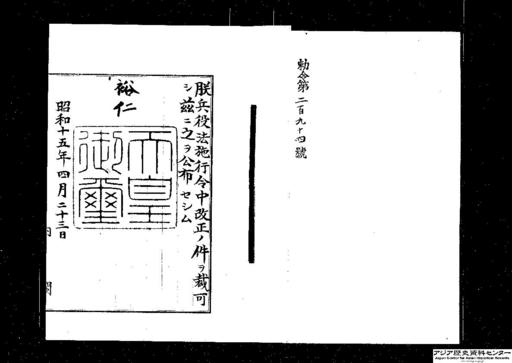 勅令第二百九十四號
朕兵役法施行令中改正ノ件ヲ裁可
シ茲ニ之ヲ公布セシム
裕仁
天皇
御璽
昭和十五年四月二十三日
内閣
アジア歴史資料センター
Japan Center for Asian Historical Records